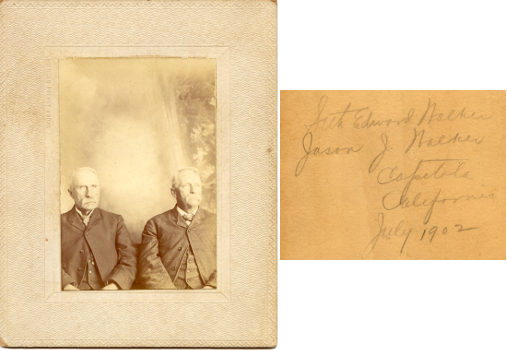 Seth Edward Walker
Jason J. Walker
Capitola
California
July 1902